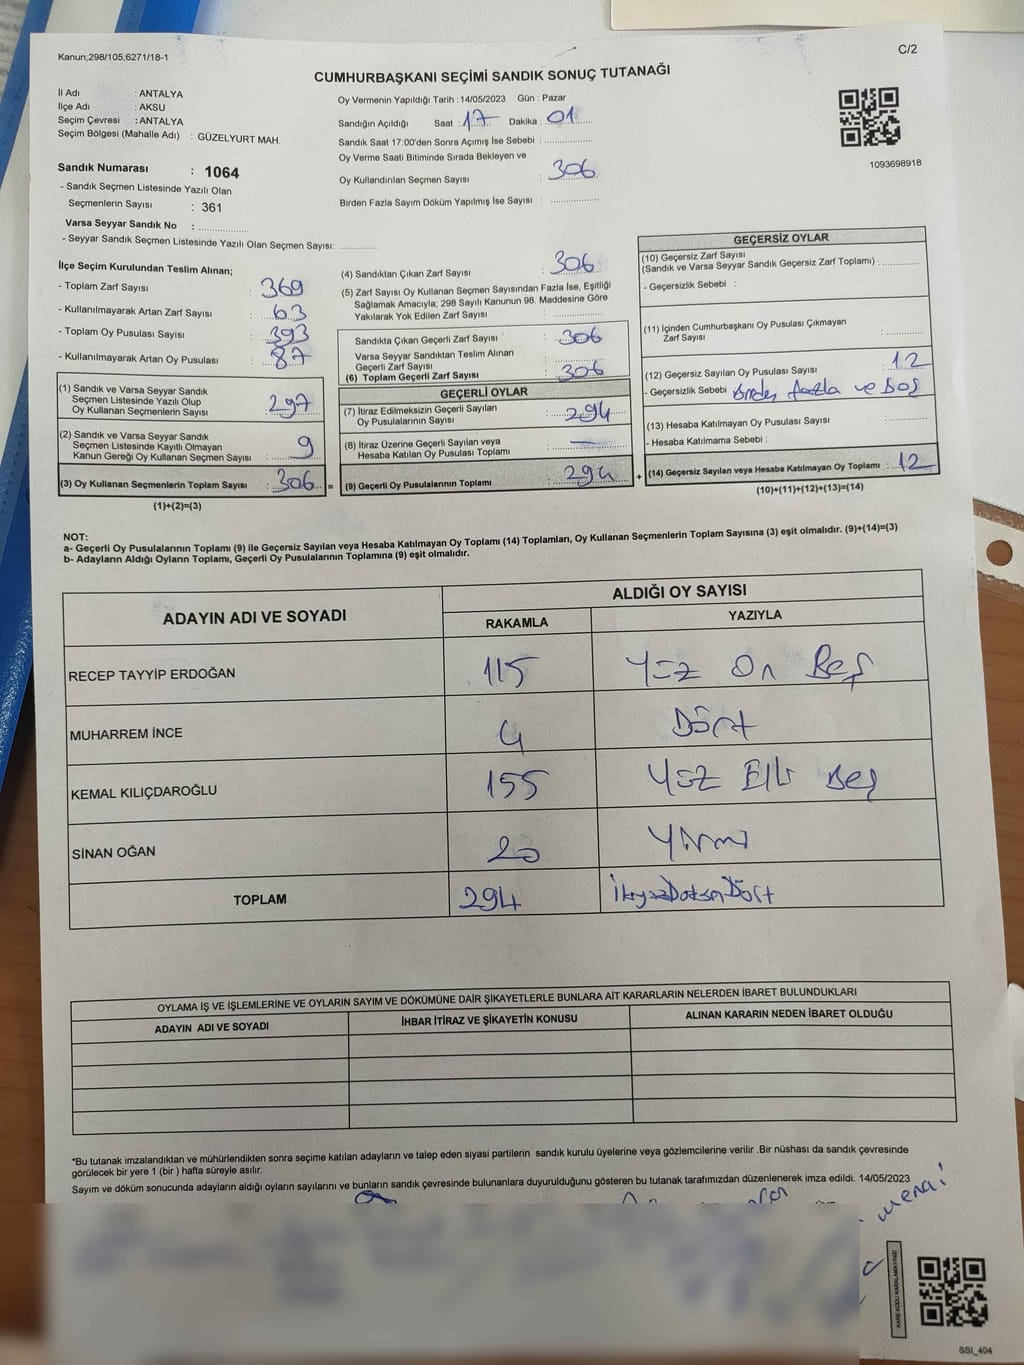 Kanun;298/105;6271/18-1
C/2
CUMHURBAŞKANI SEÇİMİ SANDIK SONUÇ TUTANAĞI
İl Adı : ANTALYA
İlçe Adı : AKSU
Seçim Çevresi : ANTALYA
Seçim Bölgesi (Mahalle Adı) : GÜZELYURT MAH.
Oy Vermenin Yapıldığı Tarih :14/05/2023 Gün : Pazar
Sandığın Açıldığı Saat : 17 Dakika : 01
Sandık Saat 17:00'den Sonra Açımış İse Sebebi :
Oy Verme Saati Bitiminde Sırada Bekleyen ve
Oy Kullandırılan Seçmen Sayısı : 306
Birden Fazla Sayım Döküm Yapılmış İse Sayısı :
1093698918
Sandık Numarası : 1064
- Sandık Seçmen Listesinde Yazılı Olan
Seçmenlerin Sayısı : 361
Varsa Seyyar Sandık No :
- Seyyar Sandık Seçmen Listesinde Yazılı Olan Seçmen Sayısı:
İlçe Seçim Kurulundan Teslim Alınan;
- Toplam Zarf Sayısı : 369
- Kullanılmayarak Artan Zarf Sayısı : 63
- Toplam Oy Pusulası Sayısı : 393
- Kullanılmayarak Artan Oy Pusulası : 87
(1) Sandık ve Varsa Seyyar Sandık
Seçmen Listesinde Yazılı Olup
Oy Kullanan Seçmenlerin Sayısı : 297
(2) Sandık ve Varsa Seyyar Sandık
Seçmen Listesinde Kayıtlı Olmayan
Kanun Gereği Oy Kullanan Seçmen Sayısı : 9
(3) Oy Kullanan Seçmenlerin Toplam Sayısı : 306 =
(1)+(2)=(3)
(4) Sandıktan Çıkan Zarf Sayısı : 306
(5) Zarf Sayısı Oy Kullanan Seçmen Sayısından Fazla İse, Eşitliği
Sağlamak Amacıyla; 298 Sayılı Kanunun 98. Maddesine Göre
Yakılarak Yok Edilen Zarf Sayısı :
Sandıkta Çıkan Geçerli Zarf Sayısı : 306
Varsa Seyyar Sandıktan Teslim Alınan
Geçerli Zarf Sayısı :
(6) Toplam Geçerli Zarf Sayısı : 306
GEÇERLİ OYLAR
(7) İtiraz Edilmeksizin Geçerli Sayılan
Oy Pusulalarının Sayısı : 294
(8) İtiraz Üzerine Geçerli Sayılan veya
Hesaba Katılan Oy Pusulası Toplamı : —
(9) Geçerli Oy Pusulalarının Toplamı : 294 +
GEÇERSİZ OYLAR
(10) Geçersiz Zarf Sayısı
(Sandık ve Varsa Seyyar Sandık Geçersiz Zarf Toplamı) :
- Geçersizlik Sebebi :
(11) İçinden Cumhurbaşkanı Oy Pusulası Çıkmayan
Zarf Sayısı :
(12) Geçersiz Sayılan Oy Pusulası Sayısı : 12
- Geçersizlik Sebebi : birden fazla ve Boş
(13) Hesaba Katılmayan Oy Pusulası Sayısı :
- Hesaba Katılmama Sebebi :
(14) Geçersiz Sayılan veya Hesaba Katılmayan Oy Toplamı : 12
(10)+(11)+(12)+(13)=(14)
NOT:
a- Geçerli Oy Pusulalarının Toplamı (9) ile Geçersiz Sayılan veya Hesaba Katılmayan Oy Toplamı (14) Toplamları, Oy Kullanan Seçmenlerin Toplam Sayısına (3) eşit olmalıdır. (9)+(14)=(3)
b- Adayların Aldığı Oyların Toplamı, Geçerli Oy Pusulalarının Toplamına (9) eşit olmalıdır.
ADAYIN ADI VE SOYADI
ALDIĞI OY SAYISI
RAKAMLA YAZIYLA
RECEP TAYYİP ERDOĞAN 115 Yüz On Beş
MUHARREM İNCE 4 Dört
KEMAL KILIÇDAROĞLU 155 Yüz Elli Beş
SİNAN OĞAN 20 Yirmi
TOPLAM 294 İkiyüzDoksanDört
OYLAMA İŞ VE İŞLEMLERİNE VE OYLARIN SAYIM VE DÖKÜMÜNE DAİR ŞİKAYETLERLE BUNLARA AİT KARARLARIN NELERDEN İBARET BULUNDUKLARI
ADAYIN ADI VE SOYADI İHBAR İTİRAZ VE ŞİKAYETİN KONUSU ALINAN KARARIN NEDEN İBARET OLDUĞU
*Bu tutanak imzalandıktan ve mühürlendikten sonra seçime katılan adayların ve talep eden siyasi partilerin sandık kurulu üyelerine veya gözlemcilerine verilir .Bir nüshası da sandık çevresinde
görülecek bir yere 1 (bir ) hafta süreyle asılır.
Sayım ve döküm sonucunda adayların aldığı oyların sayılarını ve bunların sandık çevresinde bulunanlara duyurulduğunu gösteren bu tutanak tarafımızdan düzenlenerek imza edildi. 14/05/2023
KARE KODU KARALAMAYINIZ!
SSI_404